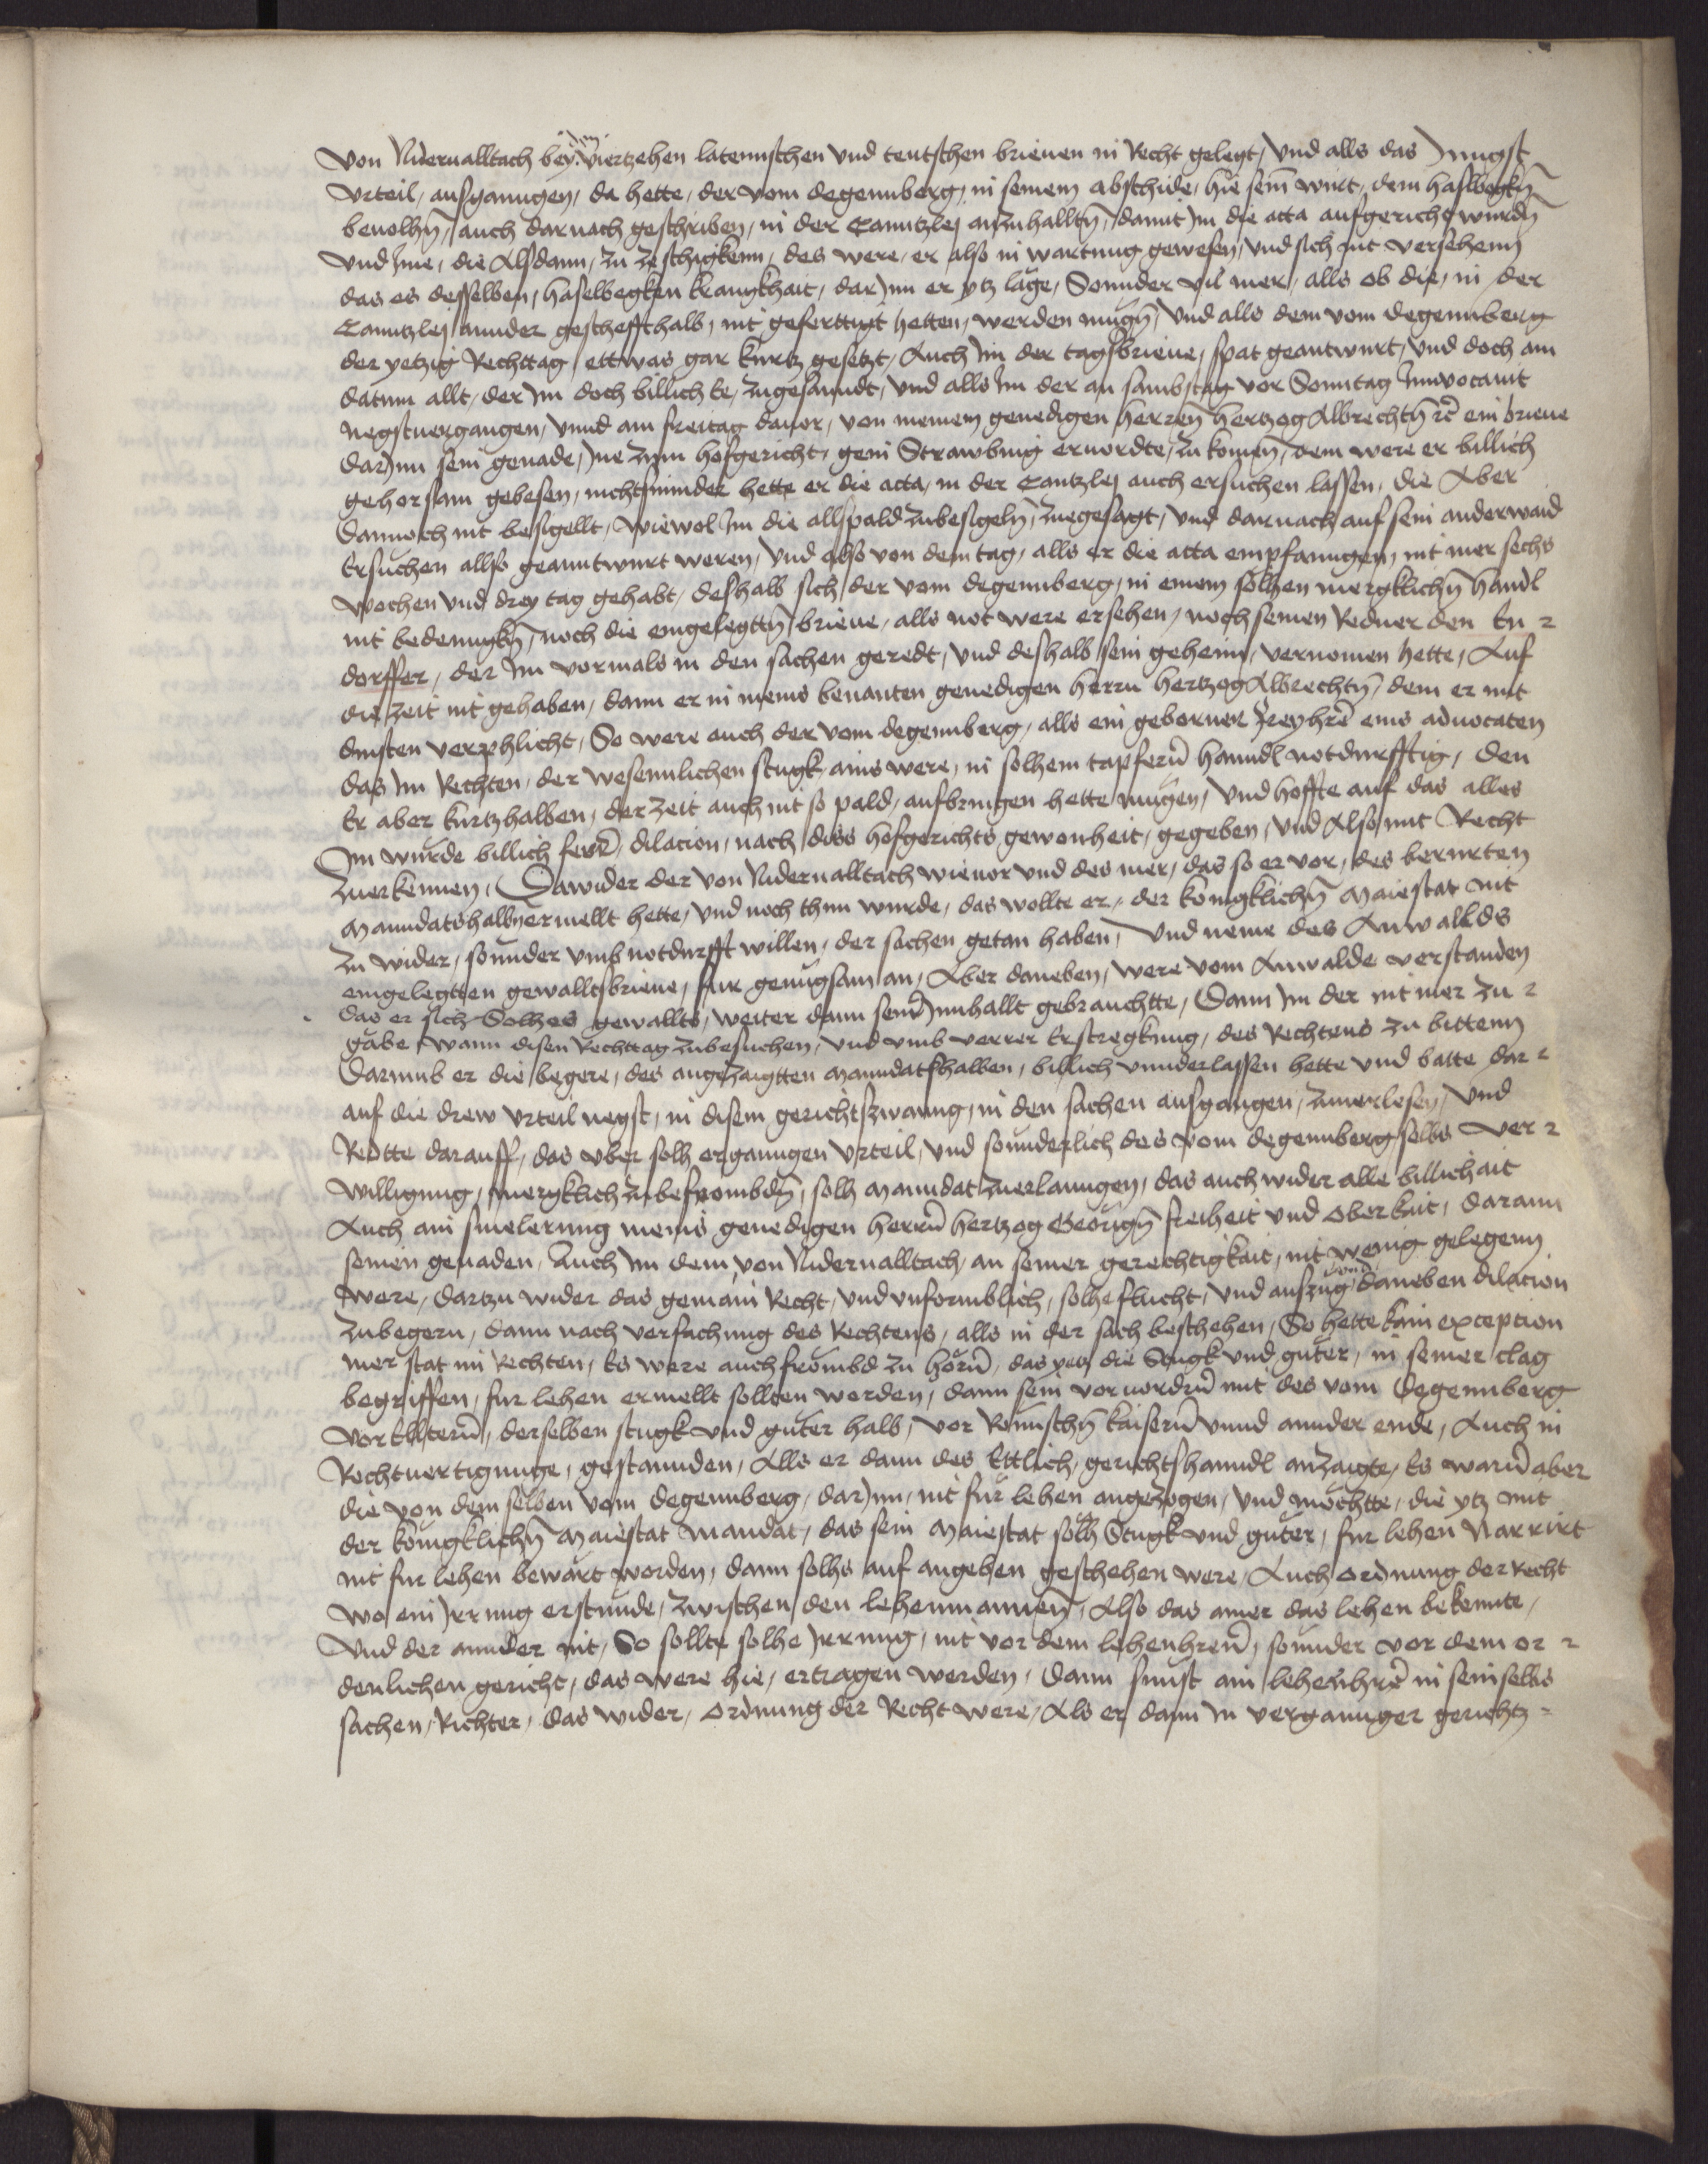 Von Nidernalltach bey viertzehen lateinischen vnd teutschen brieuen in Recht gelegt, vnd alls das Jungst
Vrteil, ausganngen, da hette, der vom degennberg, in seinem abschide, hie seinē wirt, dem haslbegkn̄
beuolhn̄, auch darnach geschriben, in der Canntzlej anzuhalltn̄, damit Im die acta aufgericht wurdn̄
vnd Ime, die Alsdann, zu ze schigkenn, des were, er also in wartung gewesen, vnd sich nit versehenn
das es desselben, haselbegken krangkhait, darJnn er ytz läge, Sonnder vil mer, alls ob die, in der
Canntzlej annder gescheffthalb, nit geferttigt hetten, werden mugn̄, vnd alls dem vom Degennberg
der yetzig Rechttag, ettwas gar kurtz gesetzt, Auch Im der tagsbrieue, spat geantwurt, vnd doch am
datum allt, der Im doch billich ee, zugesanndt, vnd alls Im der an sambstag vor Sonntag Inuocauit
negstuergangen, vnnd am freitag dauor, von meinem genedigen herren̄ hertzog Albrechtn̄ ꝛc̄ ein brieue
darJnn sein genade, Jne zum hofgericht, gein Strawbing eruordte, zu komen̄, dem were er billich
gehorsam gebesen, nichtsminder hette er die acta, in der Cantzlej auch ersuchen lassen, die Aber
dannoch nit besigellt, wiewol Im die allspald zubesigeln̄, zuegesagt, vnd darnach auf sein anderwaid
Ersuchen allso geanntwurt weren, vnd also von dem tag, alls er die acta empfanngen, nit mer sechs
wochen vnd drey tag gehabt, deshalb sich, der vom degennberg, in einem solhen mergklichn̄ hanndl
nit bedenngkn̄, noch die eingelegttn̄ brieue, alls not were ersehen, noch seinen Redner den Tn ⸗
dorffer, der Im vormals in den sachen geredt, vnd deshalb sein geheim, vernomen hette, Auf
die zeit nit gehaben, dann er in meins benanten genedigen herrn hertzog Albrechtn̄, dem er mit
dinsten verphlicht, So were auch der vom degennberg, alls ein geborner freyhr̄e eins aduocaten
das Im Rechten, der wesennlichen stugk, ains were, in solhem tapfern̄ hanndl notdurfftig, den
Er aber kurtzhalben, der zeit auch nit so pald, aufbringen hette mügen, vnd hoffte auf das alles
Im wurde billich ferr̄, dilacion, nach diss hofgerichts gewonheit, gegeben, vnd Also mit Recht
zuerkennen, Dawider der von Nidernalltach wieuor vnd des mer, das so er vor, des berurten
Manndatshalb ermellt hette, vnd noch thun wurde, das wollte er, der königklichn̄ Maiestat nit
zu wider, sonnder vmb notdurfft willen, der sachen getan haben, vnd neme des Anwallds
eingelegtten gewalltsbrieue, fur genugsam an, Aber daneben, were vom Anwalde verstanden
das er sich Solhes gewallts, weiter dann seinr̄ Innhallt gebrauchtte, Dann Im der nit mer zu ⸗
gäbe, wann disen Rechttag zubesuchen, vnd vmb verrer Erstregkung, des Rechtens zu bittenn
Darumb er die begere, des angezaigtten Manndatshalben, billich vnnderlassen hette vnd batte dar ⸗
auf die drew vrteil negst, in disem gerichtszwanng, in den sachen ausgangen, zuuerlesen, vnd
Redtte darauff, das vber solh erganngen vrteil, vnd sonnderlich des vom degennberg selbs ver ⸗
willigung, mergklich zu befrombdn̄, solh Manndat zuerlanngen, das auch wider alle billichait
Auch ain smelerung meins genedigen herrn̄ hertzog Georign̄ freiheit vnd oberkeit, daran
seinen genaden, Auch Im dem von Nidernalltach, an seiner gerechtigkait, nit wenig gelegenn
were, dartzu wider das gemain Recht, vnd vnformblich, solhe flucht, vnd auszug, vnd daneben dilacion
zubegern, dann nach verfachung des Rechtens, alls in der sach beschehen, So hette kain exception
mer stat im Rechten, Es were auch frömbd zu hörn̄, das yetz die Stugk vnd güter, in seiner clag
begriffen, fur lehen ermellt sollten werden, dann sein voruordrn̄ mit des vom Degennberg
vorElltern̄, derselben stugk vnd güter halb, vor Romischn̄ kaisern̄ vnnd annder ende, Auch in
Rechtuertigunge, gestannden, Alls er dann des Ettlich, gerichtshanndl anzaigte, Es warn̄ aber
die von dem selben vom degennberg, darJnn, nit für lehen angezogen, vnd möchtte, die ytz mit
der königklichn̄ Maiestat Mandat, das sein Maiestat solh Stugk vnd güter, fur lehen Narrirt
nit fur lehen bewärt worden, dann solhs auf angeben geschehen were, Auch ordnung der Recht
wo ein Jrrung erstunde, zwischen den lehenmannen̄, Also das ainer das lehen bekennte,
vnd der annder nit, So sollte solhe Jrrung, nit vor dem lehenhren̄, sonnder vor dem or ⸗
denlichen gericht, das were hie, ertragen werden, dann sunst ain lehenhr̄e in sein selbs
sachen, Richter, das wider, ordnung der Recht were, Als er dann in verganngner gerichtz ⸗